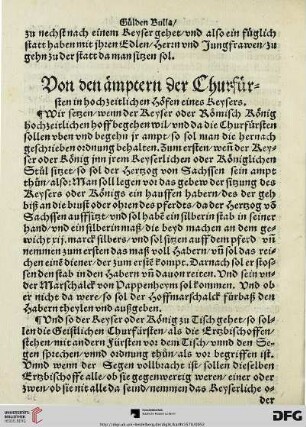 Gülden Bulla/
zu nechst nach einem Keyser gehet/ vnd also ein füglich
statt haben mit jhren Edlen/ Hern vnd Jungfrawen/ zu
gehn zu der statt da man sitzen sol.
Von den ämptern der Churfür-
sten in hochzeitlichen Höfen eines Keysers.
¶Wir setzen/ wenn der Keyser oder Römisch König
hochzeitlichen hoff begehen wil/ vnd da die Churfürsten
sollen vben vnd begehn jr ampt/ so sol man die hernach
geschrieben ordnung behalten. Zum ersten/ weñ der Key-
ser oder König inn jrem Keyserlichen oder Königlichen
Stůl sitzet/ so sol der Hertzog von Sachssen sein ampt
thůn/ also: Man soll legen vor das gebew der sitzung des
Keysers oder Königs ein hauffen habern/ des der geh
biß an die brust oder ohten des pferds/ da der Hertzog võ
Sachssen auffsitzt/ vnd sol habē ein silberin stab in seiner
hand/ vnd ein silberin maß/ die beyd machen an dem ge-
wicht xij. marck silbers/ vnd sol sitzen auff dem pferd vñ
nemmen zum ersten das maß voll Habern/ vñ sol das rei-
chen eim diener/ der zum erst kompt. Darnach sol er stos-
sen den stab in den Habern vñ dauon reiten. Vnd sein vn-
der Marschalck von Pappenheym sol kommen. Vnd ob
er nicht da were/ so sol der Hoffmarschalck fürbaß den
Habern theylen vnd außgeben.
¶Vnd so der Keyser oder König zu Tisch gehet/ so sol-
len die Geistlichen Churfürsten/ als die Ertzbischoffen/
stehen mit andern Fürsten vor dem Tisch/ vnnd den Se-
gen sprechen/ vnnd ordnung thůn/ als vor begriffen ist.
Vnd wenn der Segen vollbracht ist/ sollen dieselben
Ertzbischoffe all/ ob sie gegenwertig weren/ einer oder
zwen/ ob sie nit alle da seind/ nemmen das Keyserliche
der